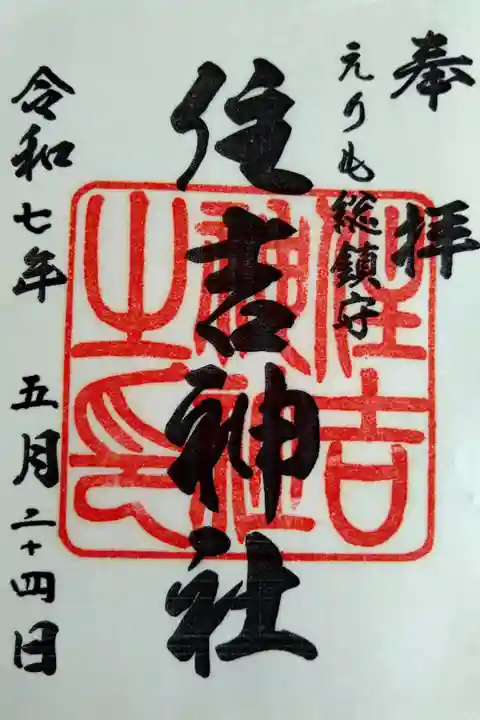 奉拝
えりも総鎮守
住吉神社
令和七年 五月二十四日
住吉
神社
之印